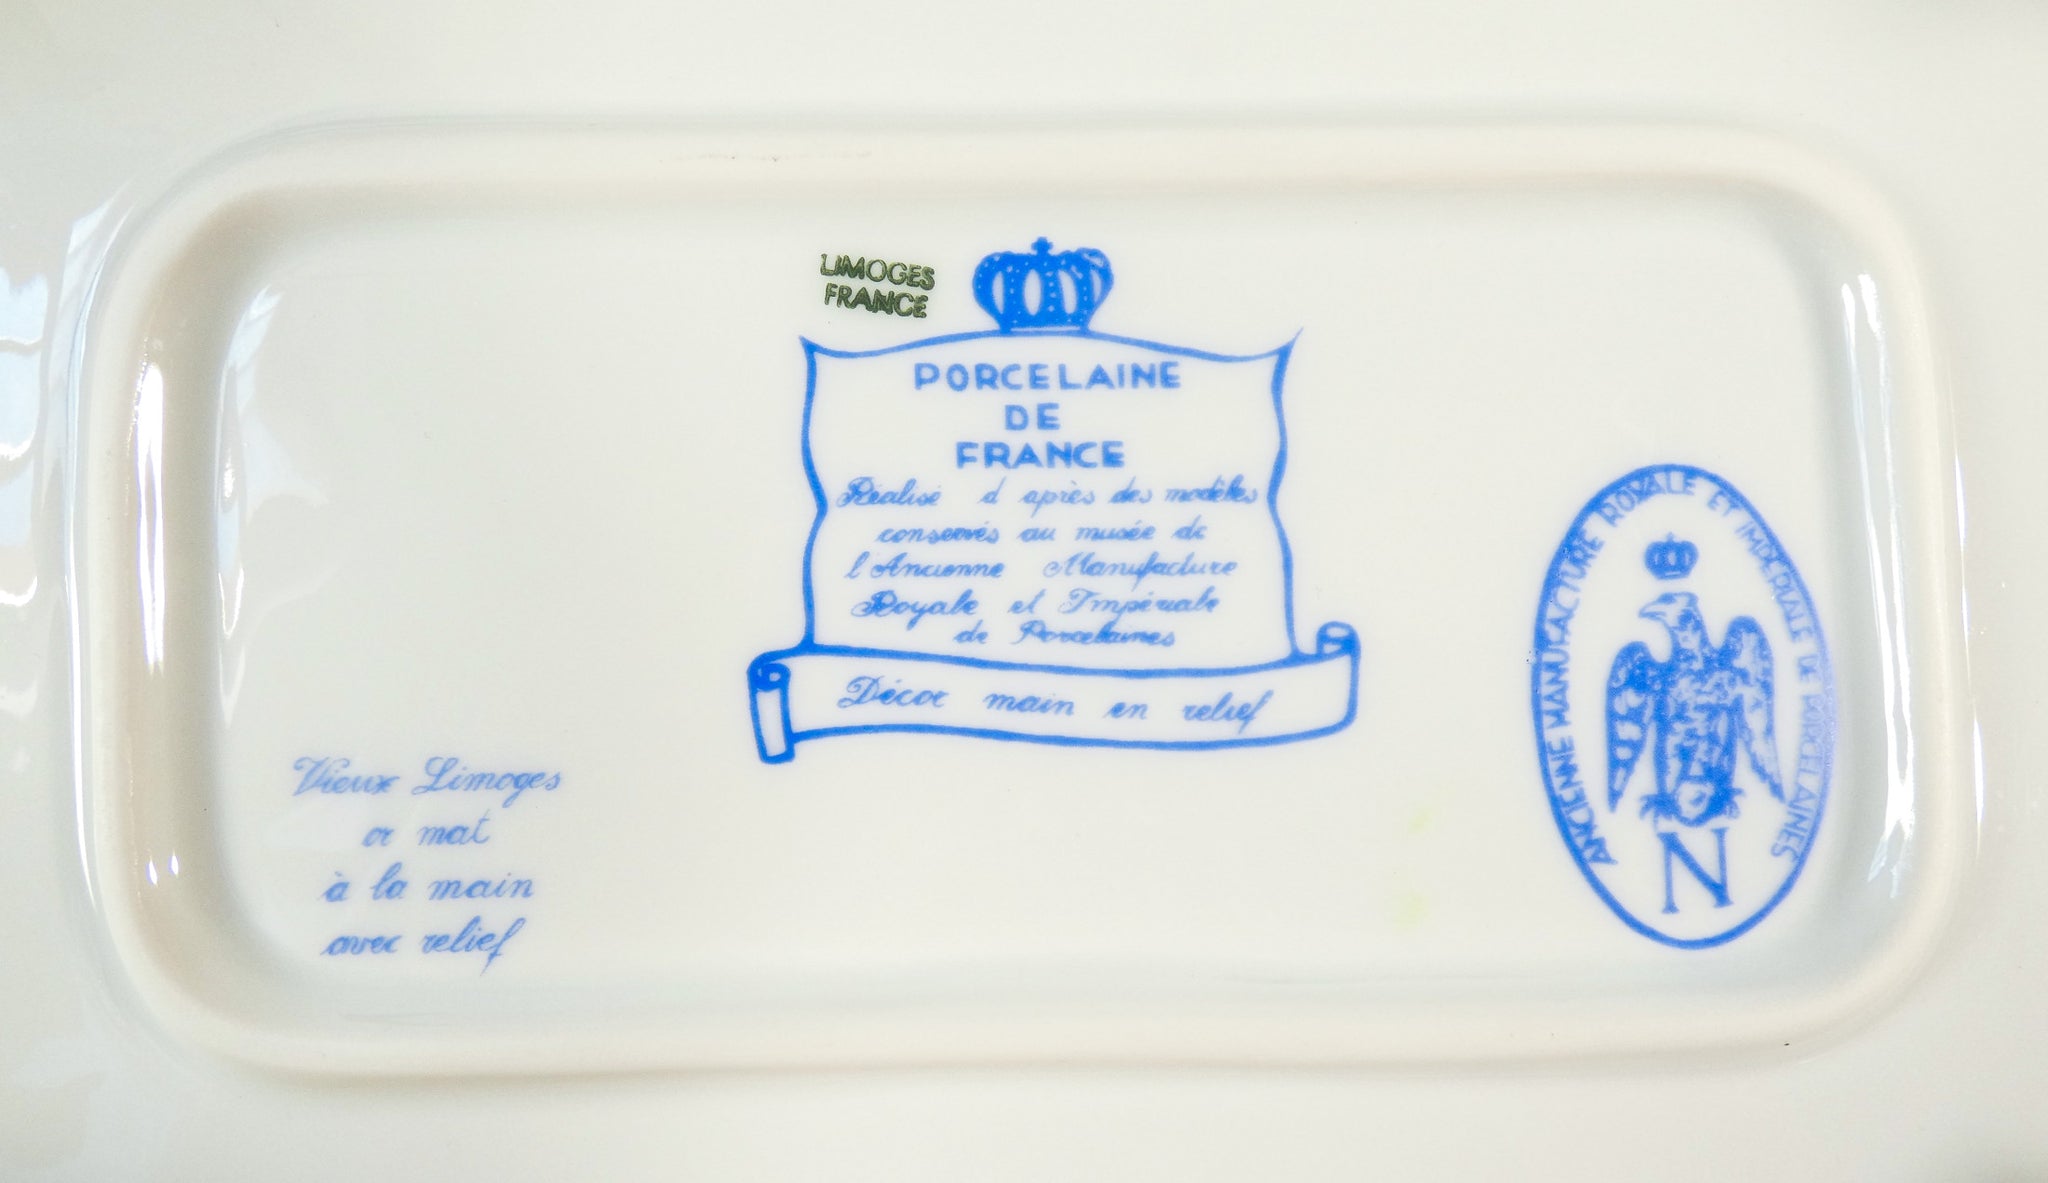 LIMOGES
FRANCE
PORCELAINE
DE
FRANCE
Réalisé d après des modèles
conservés au musée de
l'Ancienne Manufacture
Royale et Impériale
de Porcelaines
Décor main en relief
Vieux Limoges
or mat
à la main
avec relief
ANCIENNE MANUFACTURE ROYALE ET IMPERIALE DE PORCELAINES
N